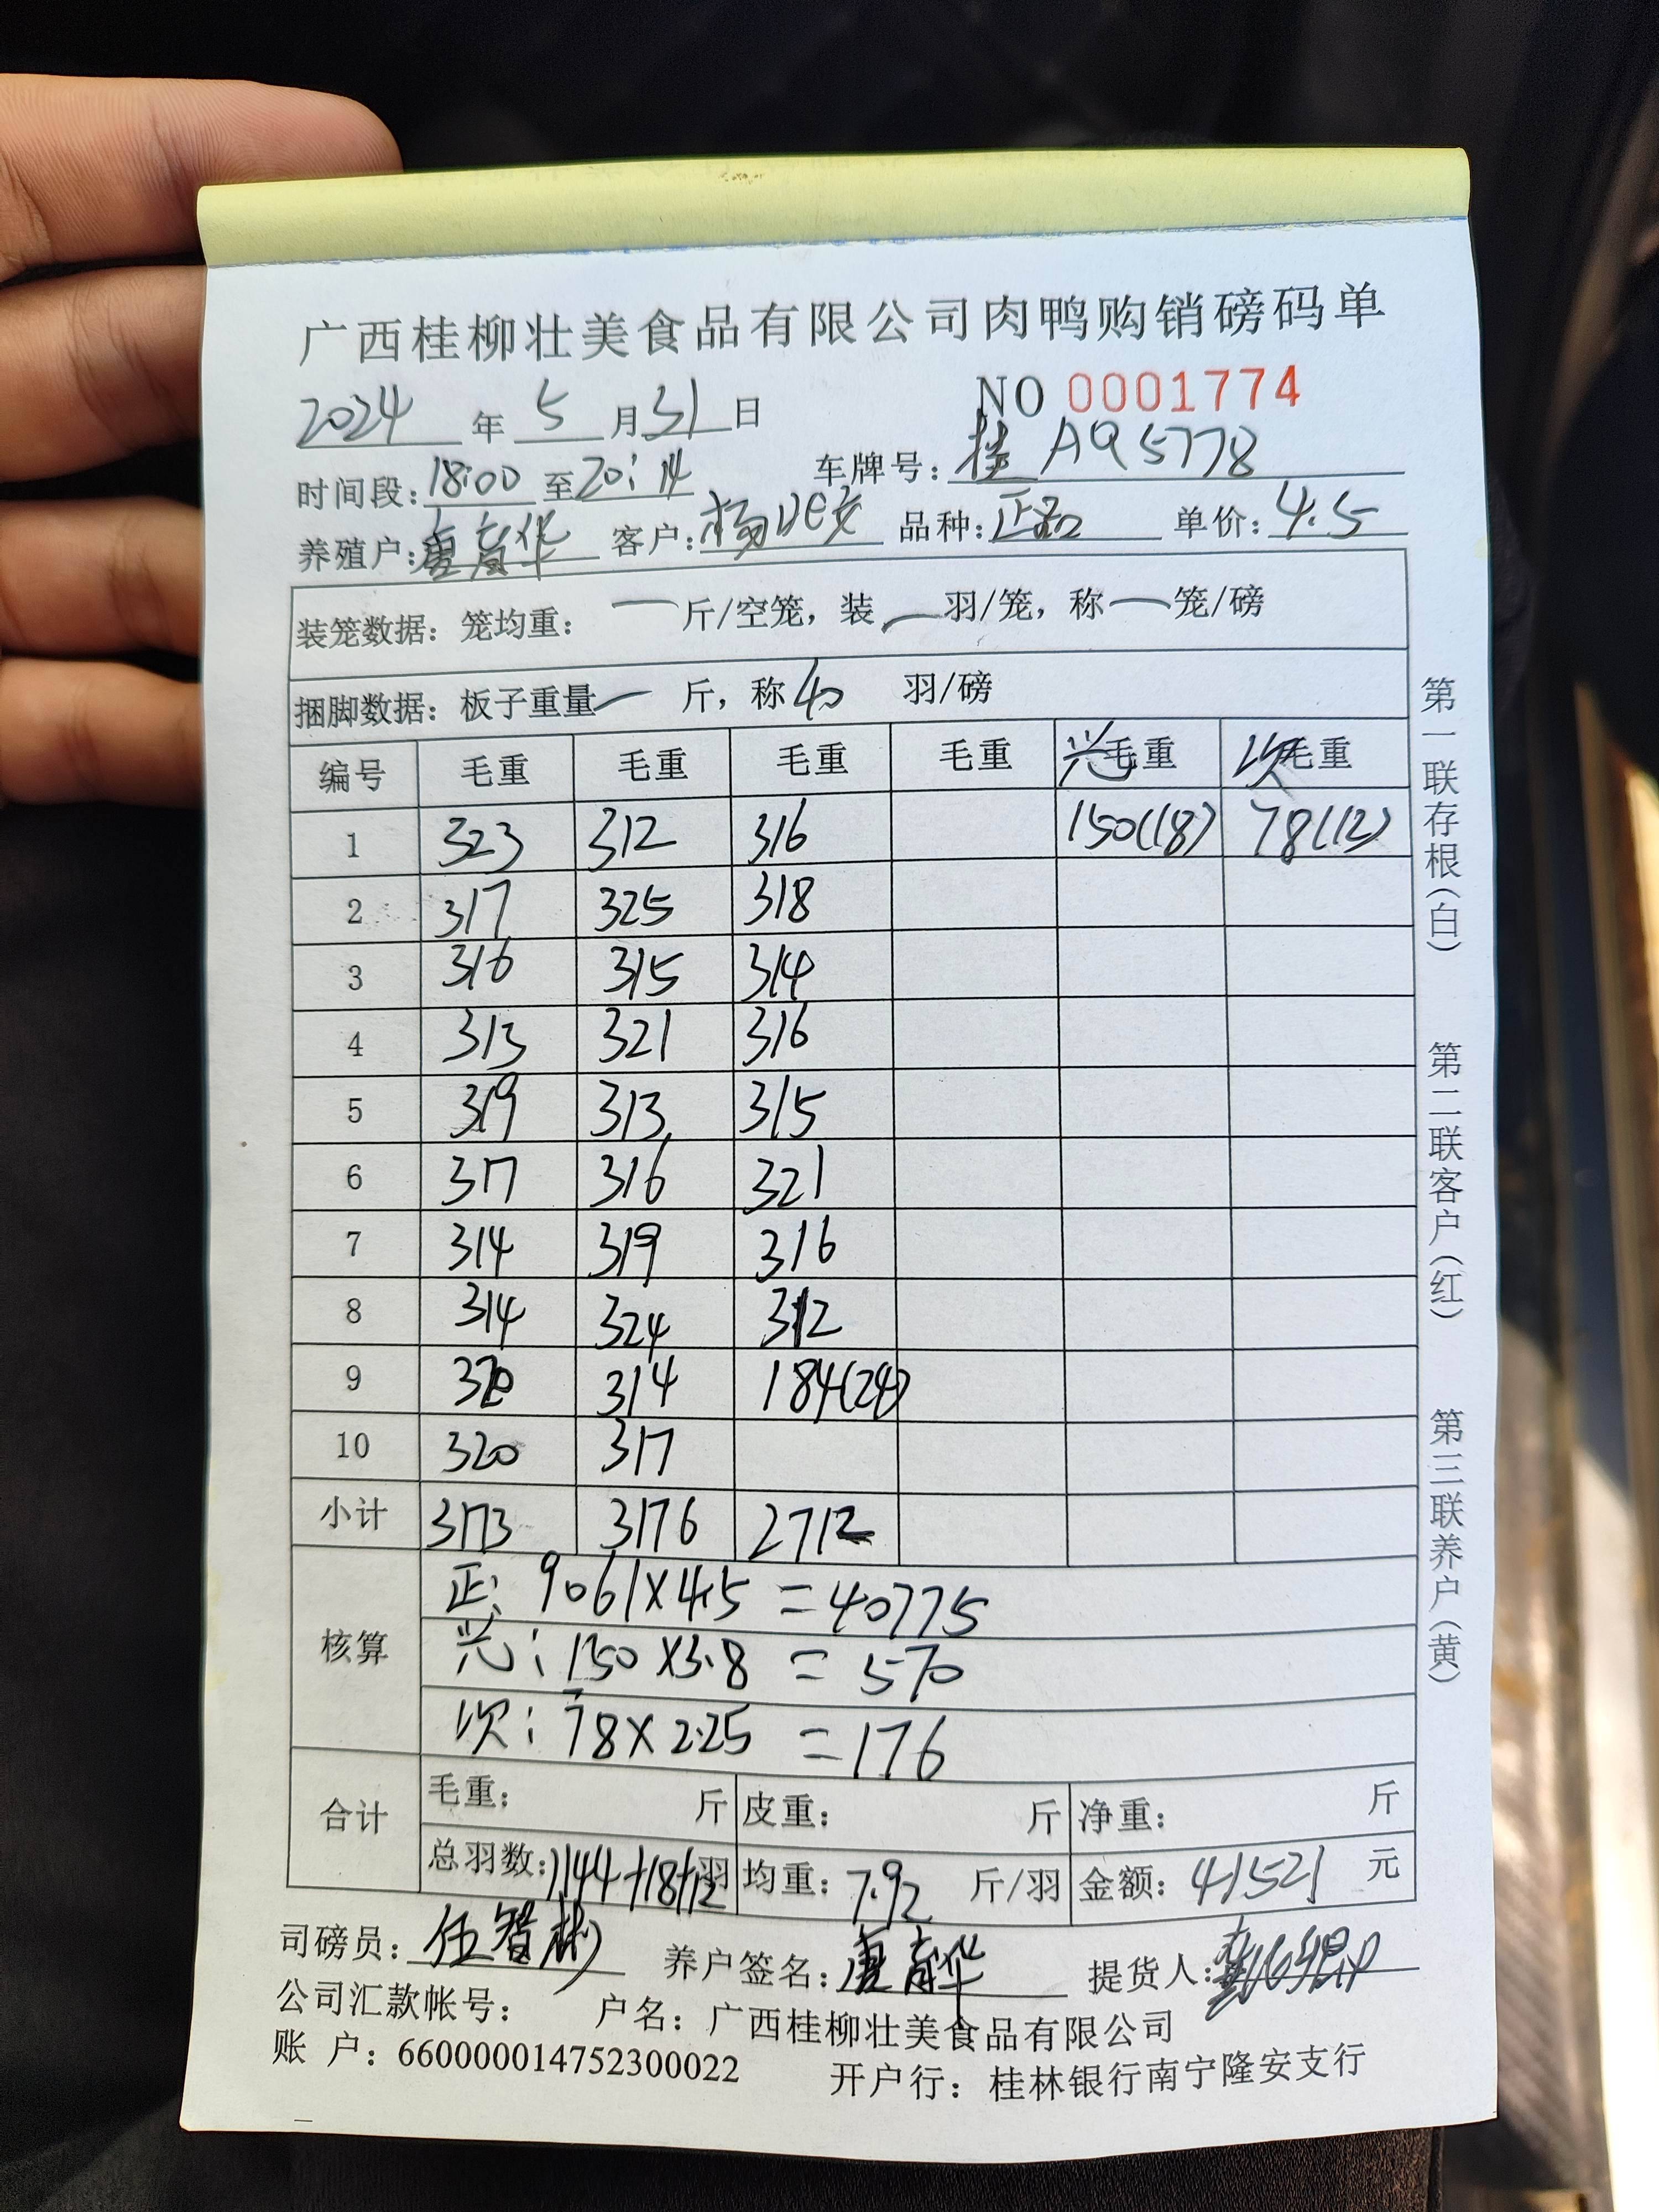 广西桂柳壮美食品有限公司肉鸭购销磅码单
2024 年 5 月 31 日 NO 0001774
时间段: 18:00 至 20:14 车牌号: 桂 AQ5778
养殖户: 客户: 杨 品种: 正品 单价: 4.5
装笼数据: 笼均重: 一 斤/空笼, 装 一 羽/笼, 称 一 笼/磅
捆脚数据: 板子重量 一 斤, 称 40 羽/磅
编号 毛重 毛重 毛重 毛重 兴毛重 次毛重
1 323 312 316 150(18) 78(12)
2 317 325 318
3 316 315 314
4 313 321 316
5 319 313 315
6 317 316 321
7 314 319 316
8 314 324 312
9 320 314 184(24)
10 320 317
小计 3173 3176 2712
核算 正: 9061×4.5 =40775
兴: 150×3.8 = 570
次: 78×2.25 =176
合计 毛重: 斤 皮重: 斤 净重: 斤
总羽数: 1144+18+12 羽 均重: 7.92 斤/羽 金额: 41521 元
司磅员: 伍智彬 养户签名: 提货人:
公司汇款帐号: 户名: 广西桂柳壮美食品有限公司
账 户: 660000014752300022 开户行: 桂林银行南宁隆安支行
第一联存根(白)
第二联客户(红)
第三联养户(黄)